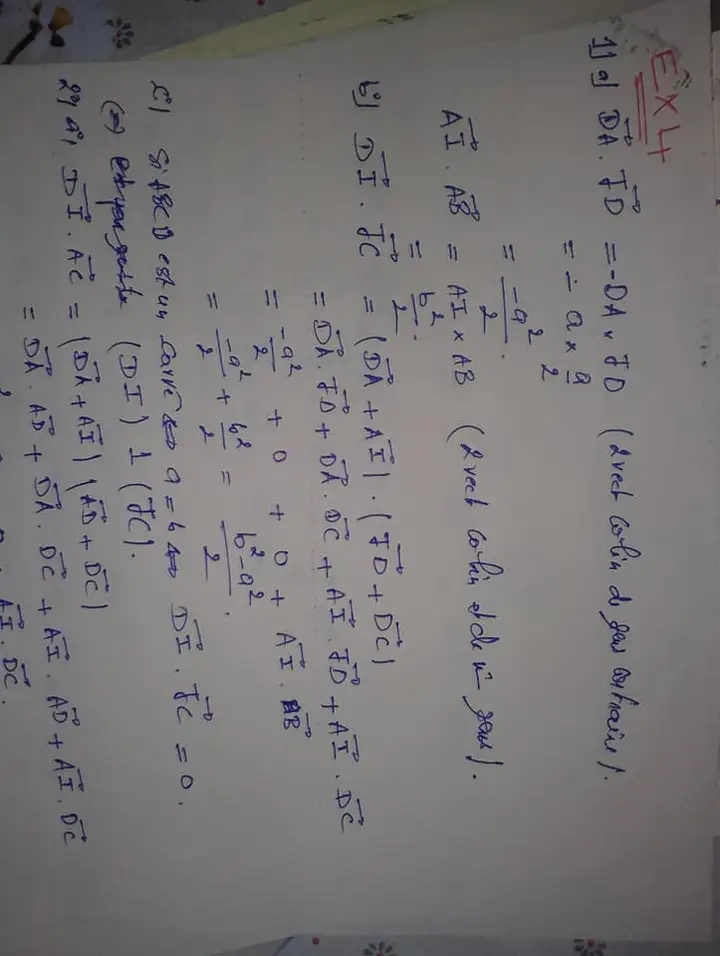 EX4
1) a) DA⃗ . JD⃗ = - DA × JD (2 vect colin de sens contraire).
= - a × a/2
= -a²/2 .
AI⃗ . AB⃗ = AI × AB (2 vect colin et de m̂ sens).
= b²/2 .
b) DI⃗ . JC⃗ = (DA⃗ + AI⃗) . (JD⃗ + DC⃗)
= DA⃗ . JD⃗ + DA⃗ . DC⃗ + AI⃗ . JD⃗ + AI⃗ . DC⃗
= -a²/2 + 0 + 0 + AI⃗ . AB⃗
= -a²/2 + b²/2 = b²-a²/2 .
c) Si ABCD est un carré ⇔ a = b ⇔ DI⃗ . JC⃗ = 0 .
(⇔) (DI) ⊥ (JC).
2) a) DI⃗ . AC⃗ = (DA⃗ + AI⃗) (AD⃗ + DC⃗)
= DA⃗ . AD⃗ + DA⃗ . DC⃗ + AI⃗ . AD⃗ + AI⃗ . DC⃗
AI⃗ . DC⃗ .